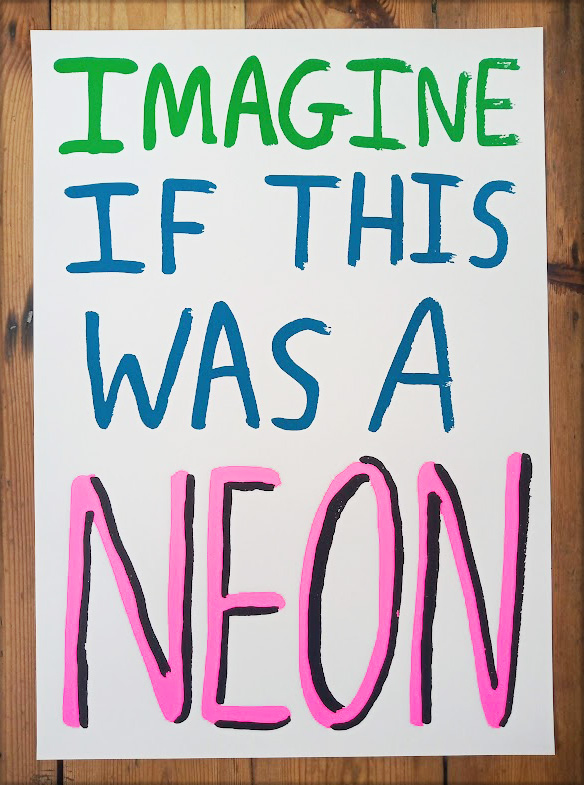 IMAGINE
IF THIS
WAS A
NEON